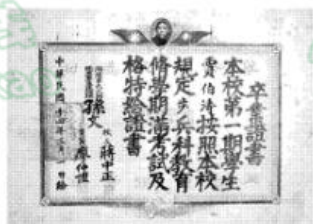 卒業證書
本校第一期學生
賈伯濤按照本校
規定步兵科教育
脩學期滿考試及
格特給證書
孫文
校長 蔣中正
廖仲愷
中華民國十四年 月 日給